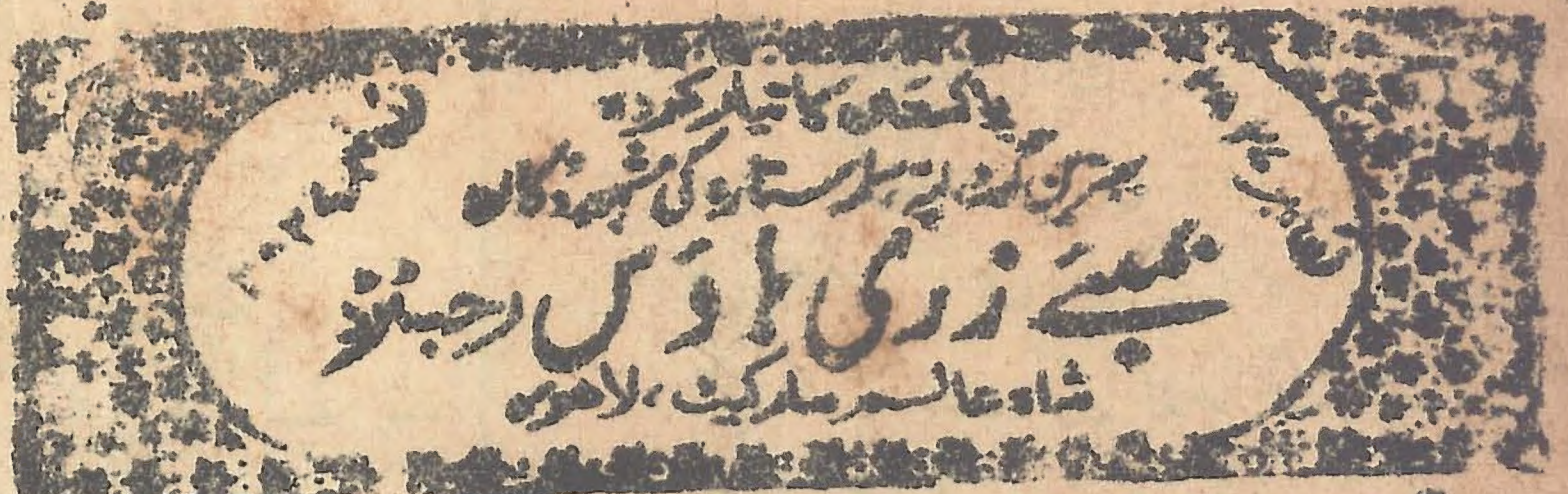 پاکستان کا تیار کردہ
بہترین گوٹہ، لپّہ، سلمہ ستارہ کی مشہور دکان
بمبئے زری ہاؤس رجسٹرڈ
شاہ عالم مارکیٹ، لاہور